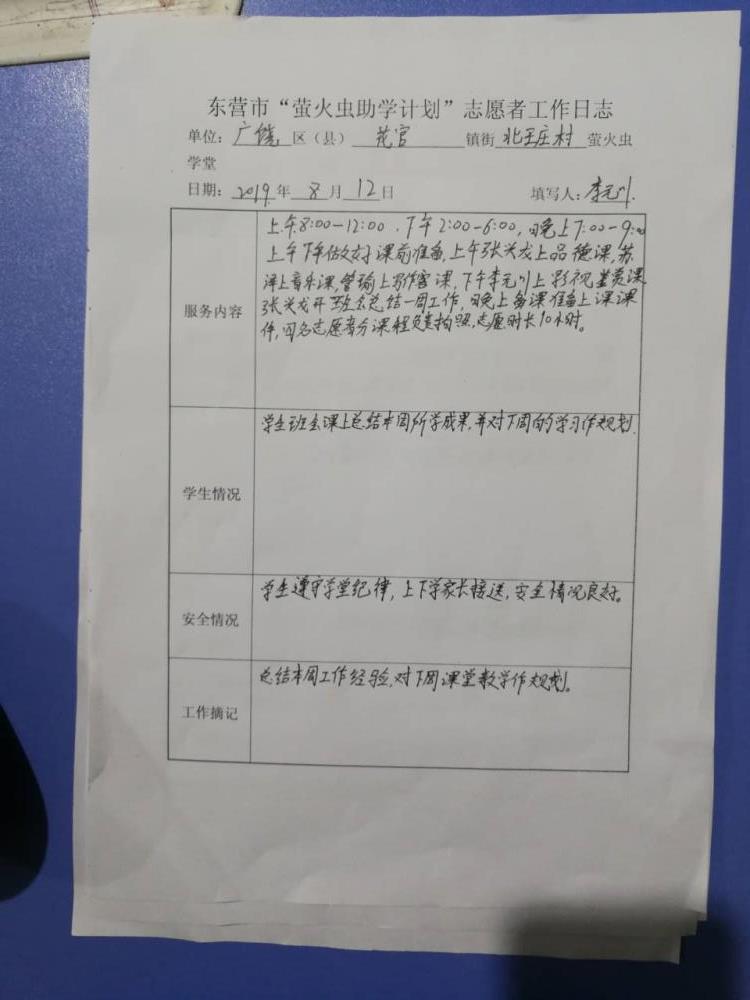 东营市“萤火虫助学计划”志愿者工作日志
单位：广饶区（县）花官镇街北王庄村萤火虫
学堂
日期：2019年8月12日 填写人：李元川.
服务内容
上午8:00-12:00．下午2:00-6:00，晚上7:00-9:00
上午下午做好课前准备，上午张关戈上品德课，苏
洋上音乐课，曾瑜上写作客课，下午李元川上影视鉴赏课
张关戈开班会总结一周工作，晚上备课准备上课课
件，四名志愿者分课程负责拍照，志愿时长10小时。
学生情况
学生班会课上总结本周所学成果，并对下周的学习作规划.
安全情况
学生遵守学堂纪律，上下学家长接送，安全情况良好。
工作摘记
总结本周工作经验，对下周课堂教学作规划。